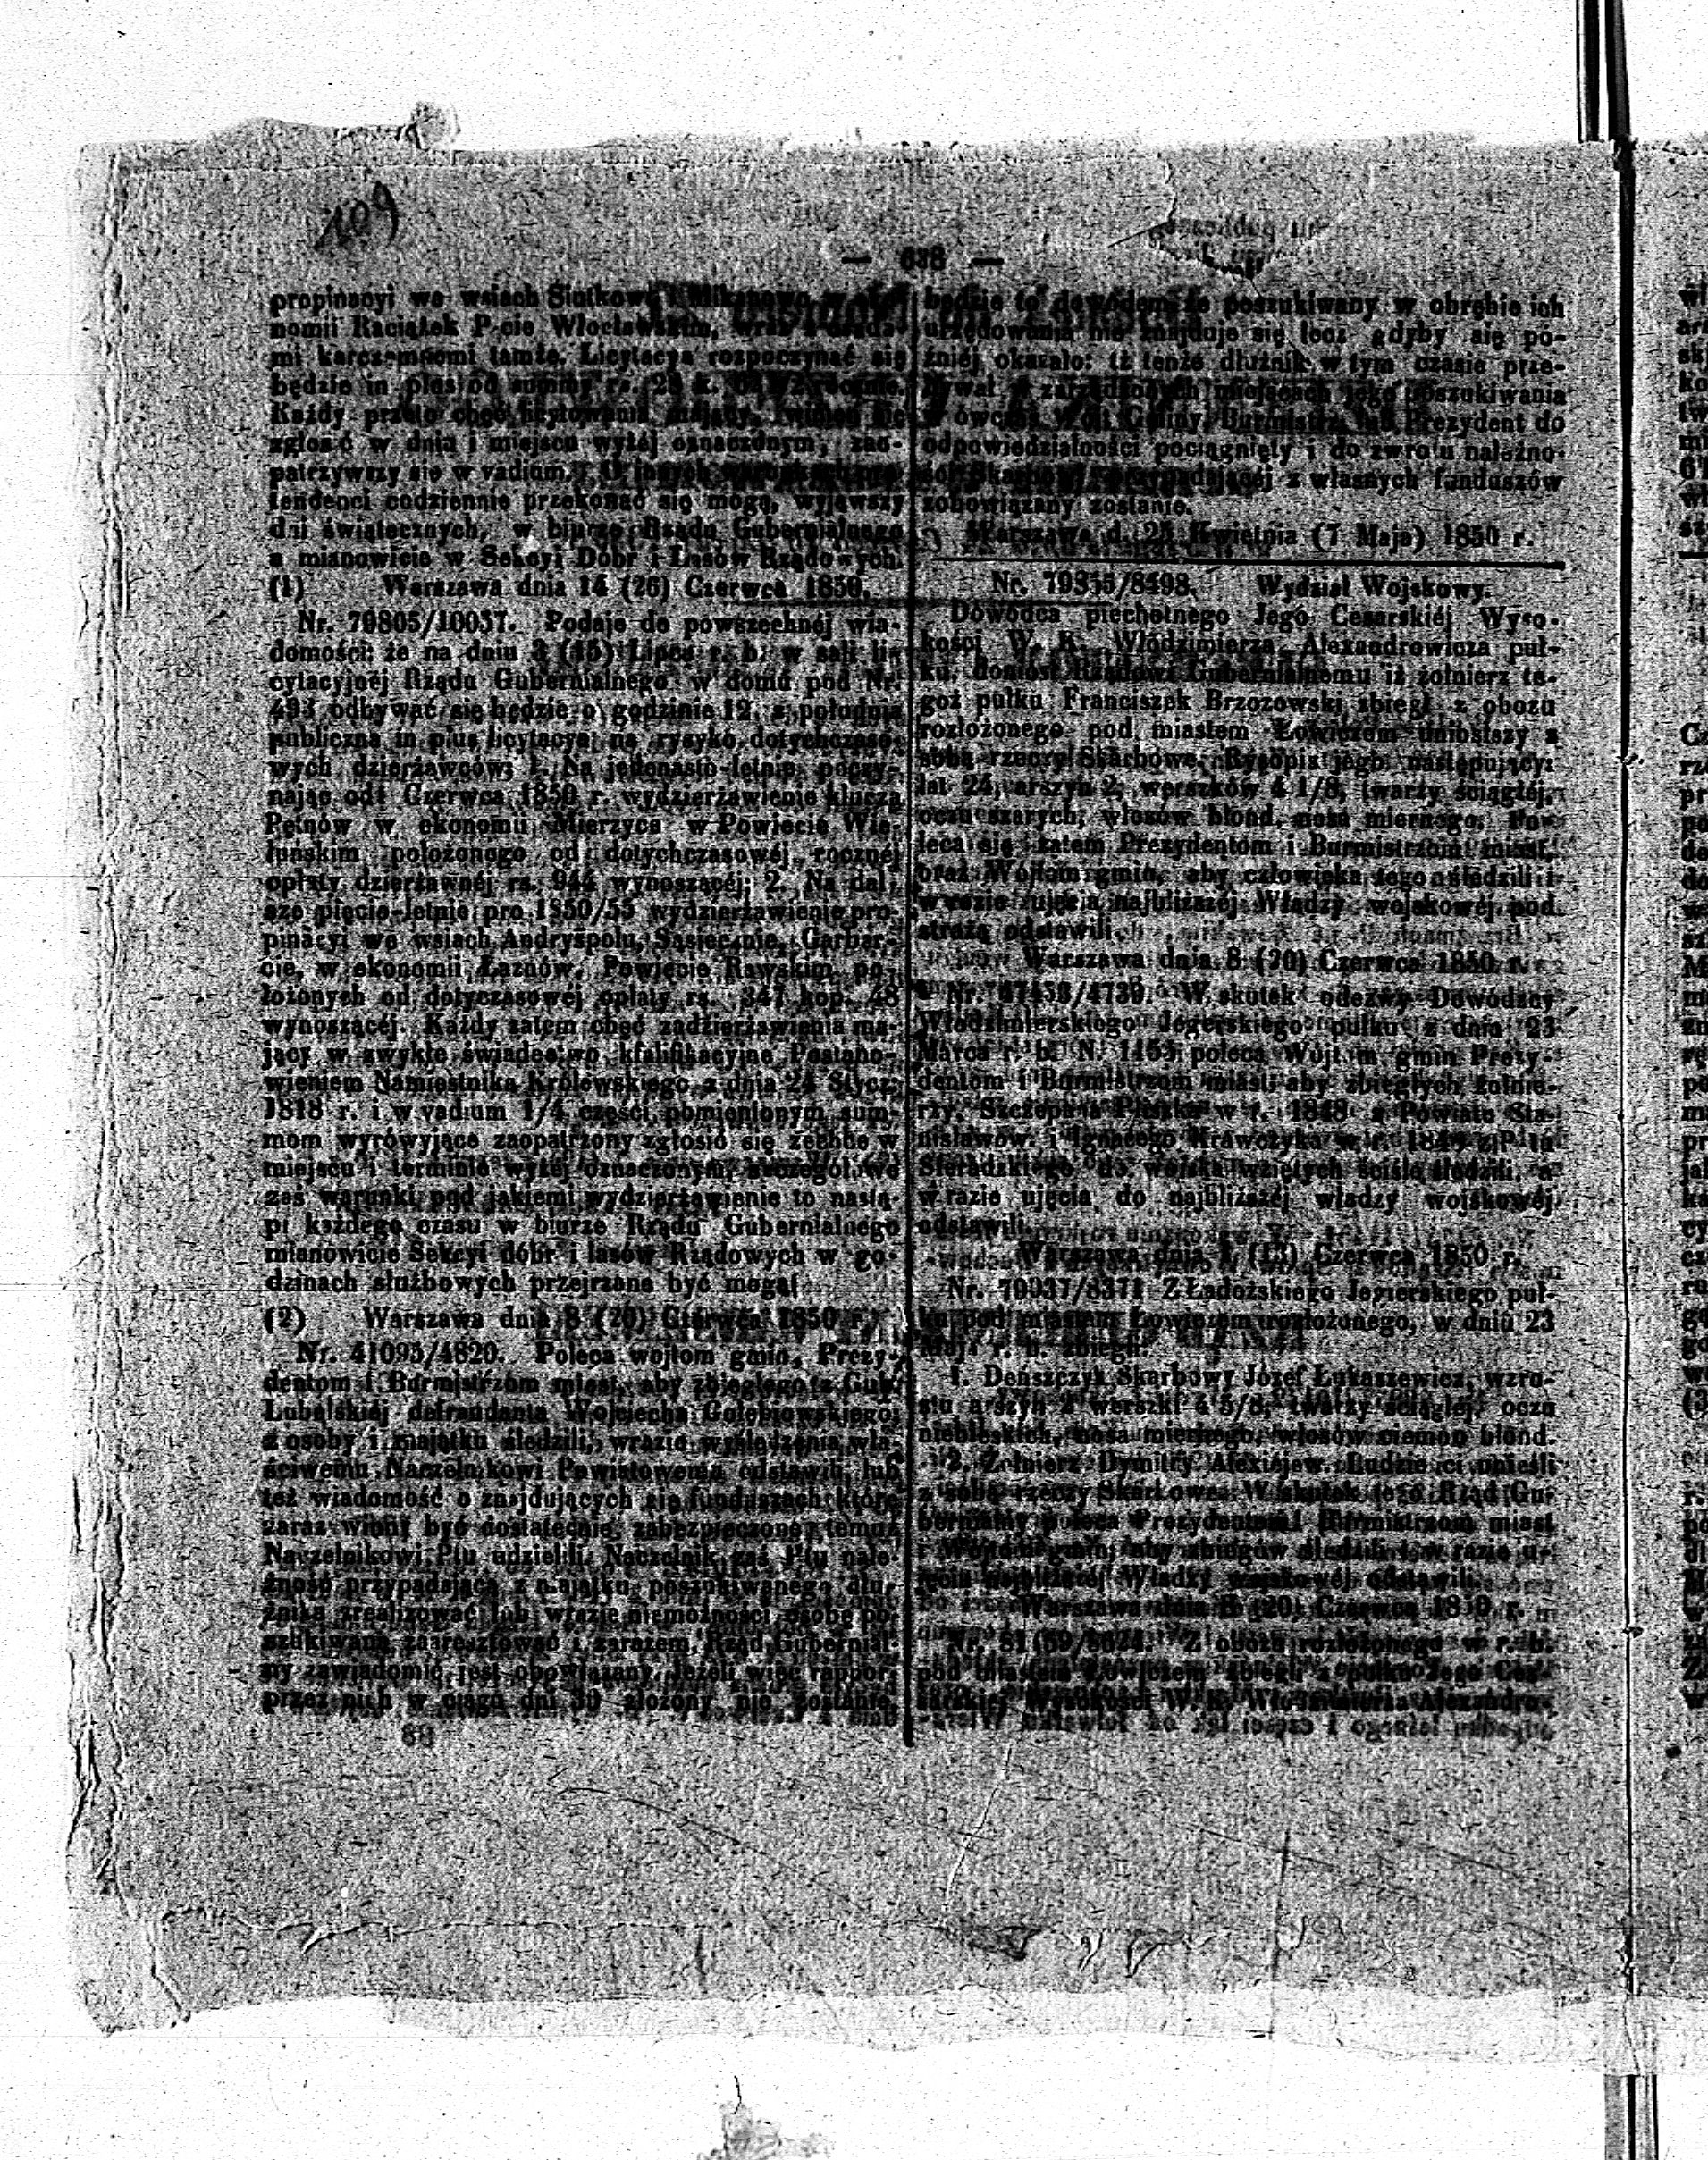 109
— 638 —
propinacyi we wsiach Siutkowo i Mikanowo w
nomii Raciążek P-cie Włocławskim, wraz z
mi karczemnemi tamże. Licytacya rozpoczynać się
będzie in plus od summy rs. 28 k.
Każdy przeto chęć licytowania mający, winien się
zgłosić w dniu i miejscu wyżej oznaczonym, zao-
patrzywszy się w vadium. O innych
tendenci codziennie przekonać się mogą, wyjąwszy
dni świątecznych, w biurze Rządu Gubernialnego
a mianowicie w Sekcyi Dóbr i Lasów Rządowych.
(1) Warszawa dnia 14 (26) Czerwca 1850.
Nr. 79805/10037. Podaje do powszechnéj wia-
domości: że na dniu 3 (15) Lipca r. b. w sali li-
cytacyjnéj Rządu Gubernialnego w domu pod Nr.
493 odbywać się będzie o godzinie 12 z południa
publiczna in plus licytacya na rysyko dotychczaso-
wych dzierżawców; 1. Na jedenasto-letnie poczy-
nając od 1 Czerwca 1850 r. wydzierżawienie klucza
Pętnów w ekonomii Mierzyce w Powiecie Wie-
luńskim położonego od dotychczasowéj rocznéj
opłaty dzierżawnéj rs. 944 wynoszącéj; 2. Na dal-
sze pięcio-letnie pro 1850/55 wydzierżawienie pro-
pinacyi we wsiach Andryspolu, Sąsiecznie, Garbar-
cie, w ekonomii Łaznów, Powiecie Rawskim po-
łożonych od dotyczasowéj opłaty rs. 347 kop. 48
wynoszącéj. Każdy zatem chęć zadzierżawienia ma-
jący w zwykłe świadectwo kfalifikacyjne Postano-
wieniem Namiestnika Królewskiego z dnia 24 Stycz:
1818 r. i w vadium 1/4 części pomienionym sum-
mom wyrówyjące zaopatrzony zgłosić się zechce w
miejscu i terminie wyżéj oznaczonym, szczegółowe
zaś warunki pod jakiemi wydzierżawienie to nastą-
pi każdego czasu w biurze Rządu Gubernialnego
mianowicie Sekcyi dóbr i lasów Rządowych w go-
dzinach służbowych przejrzane być mogą.
(2) Warszawa dnia 8 (20) Czerwca 1850 r.
Nr. 41093/4820. Poleca wójtom gmin, Prezy-
dentom i Burmistrzom miast, aby zbiegłego z Gub.
Lubelskiéj defraudanta Wojciecha Gołębiowskiego
z osoby i majątku śledzili, wrazie wyśledzenia wła-
ściwemu Naczelnikowi Powiatowemu odstawili, lub
też wiadomość o znajdujących się funduszach które
zaraz winny być dostatecznie zabezpieczone temuż
Naczelnikowi Ptu udzielili. Naczelnik zaś Ptu nale-
żność przypadającą z majątku poszukiwanego dłu-
żnika zrealizować lub wrazie niemożności osobę po-
szukiwaną zaaresztować i zarazem Rząd Gubernial-
ny zawiadomić jest obowiązany. Jeżeli więc rapport
przez nich w ciągu dni 30 złożony nie zostanie,
88
będzie to dowodem że poszukiwany w obrębie ich
urzędowania nie znajduje się lecz gdyby się pó-
źniéj okazało: iż tenże dłużnik w tym czasie prze-
bywał w zarządzonych miejscach jego poszukiwania
ówczas Wójt Gminy, Burmistrz lub Prezydent do
odpowiedzialności pociągnięty i do zwrotu należno-
ści Skarbowi przypadającéj z własnych funduszów
zobowiązany zostanie.
Warszawa d. 25 Kwietnia (7 Maja) 1850 r.
Nr. 79355/8498. Wydział Wojskowy.
Dowódca piechotnego Jego Cesarskiéj Wyso-
kości W. K. Włodzimierza Alexandrowicza puł-
ku, doniósł Rządowi Gubernialnemu iż żołnierz te-
goż pułku Franciszek Brzozowski zbiegł z obozu
rozłożonego pod miastem Łowiczem uniosłszy z
sobą rzeczy Skarbowe. Rysopis jego następujący:
lat 24, arszyn 2, werszków 4 1/8, twarzy ściągłéj,
oczu szarych, włosów blond, nosa miernego. Po-
leca się zatem Prezydentom i Burmistrzom miast,
oraz Wójtom gmin, aby człowieka tego śledzili i
w razie ujęcia najbliższéj Władzy wojskowéj pod
strażą odstawili.
Warszawa dnia 8 (20) Czerwca 1850 r.
Nr. 67453/4739. W skutek odezwy Dowódzcy
Włodzimierskiego Jegerskiego pułku z dnia 23
Marca r. b. N. 1463 poleca Wójtom gmin Prezy-
dentom i Burmistrzom miast, aby zbiegłych żołnie-
rzy, Szczepana Pliszka w r. 1848 z Powiatu Sta-
nisławow. i Ignacego Krawczyka w r. 1849 z Ptu
Sieradzkiego do wojska wziętych ściśle śledzili, a
w razie ujęcia do najbliższéj władzy wojskowéj
odstawili.
Warszawa dnia 1 (13) Czerwca 1850 r.
Nr. 79937/8371 Z Ładożskiego Jegierskiego puł-
ku pod miastem Łowiczem rozłożonego, w dniu 23
Maja r. b. zbiegli:
1. Deńszczyk Skarbowy Józef Łukaszewicz, wzro-
stu arszyn 2 werszki 4 5/8, twarzy ściągłéj, oczu
niebieskich, nosa miernego, włosów ciemno blond.
2. Żołnierz Dymitry Alexiejew. Ludzie ci unieśli
z sobą rzeczy Skarbowe. W skutek tego Rząd Gu-
bernialny poleca Prezydentom i Burmistrzom miast
i Wójtom gmin, aby zbiegów śledzili i w razie u-
jęcia najbliższéj Władzy wojskowéj odstawili.
Warszawa dnia 8 (20) Czerwca 1850 r.
Nr. Z obozu rozłożonego w r. b.
pod miastem Łowiczem zbiegli z pułku Jego Ces-
arskiéj Wysokości W. K. Włodzimierza Alexandro-